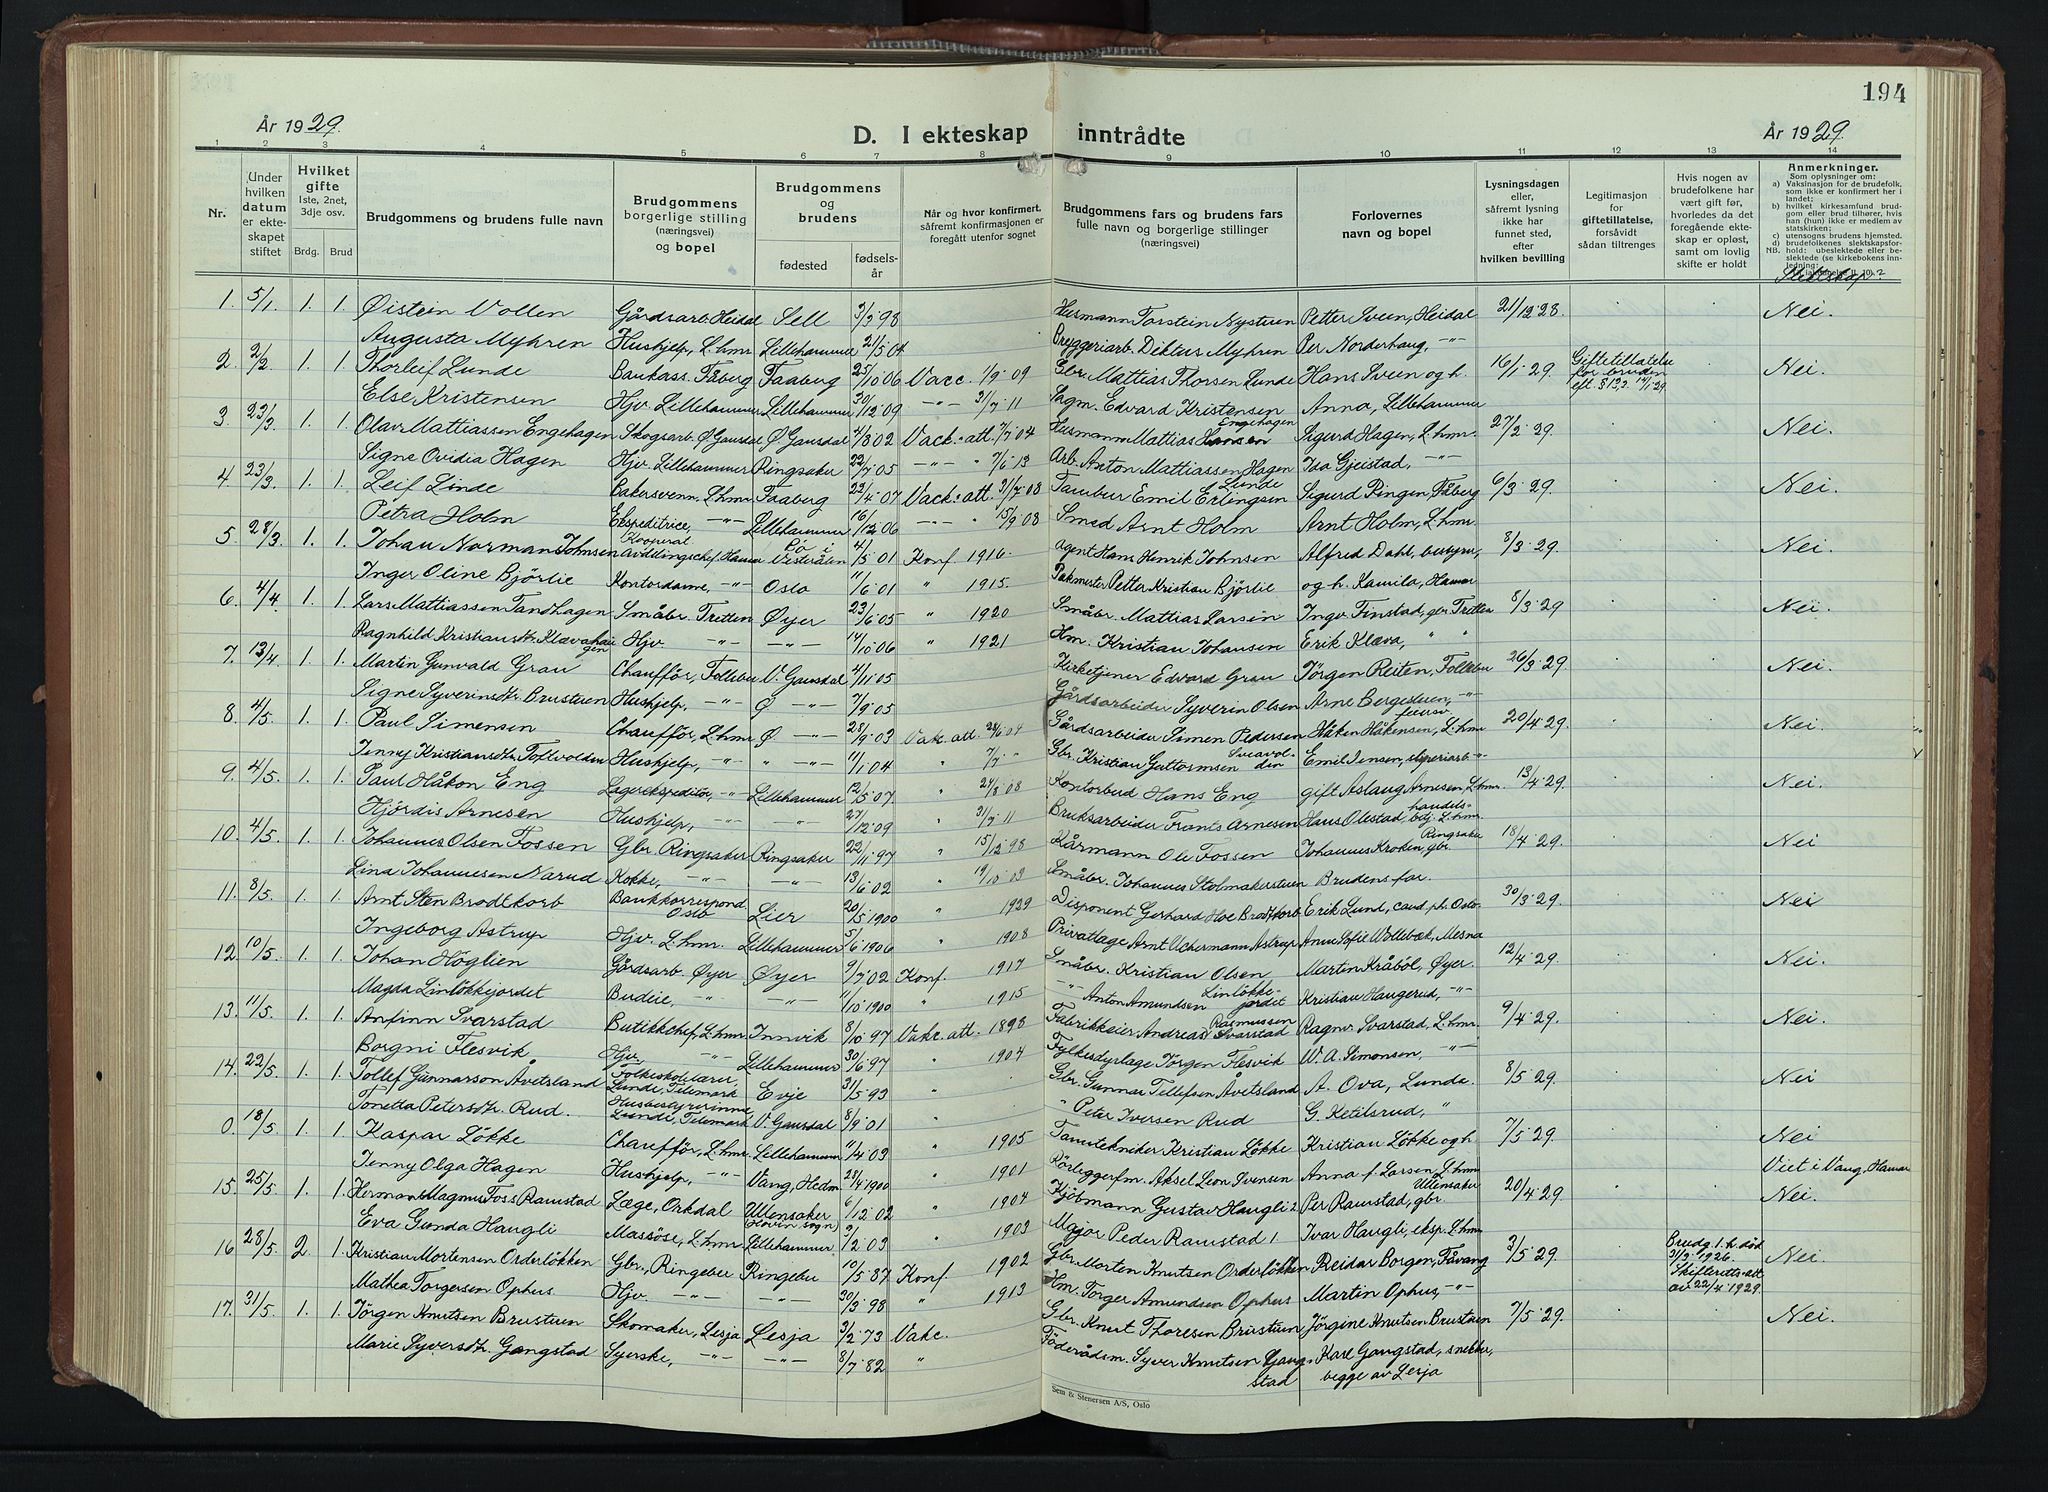 194
År 1929.
D. I ekteskap inntrådte
År 1929.
1 2 3 4 5 6 7 8 9 10 11 12 13 14
Nr.
Under hvilken datum er ekteskapet stiftet
Hvilket gifte 1ste, 2net, 3dje osv.
Brdg. Brud
Brudgommens og brudens fulle navn
Brudgommens borgerlige stilling (næringsvei) og bopel
Brudgommens og brudens
fødested
fødselsår
Når og hvor konfirmert, såfremt konfirmasjonen er foregått utenfor sognet
Brudgommens fars og brudens fars fulle navn og borgerlige stillinger (næringsvei)
Forlovernes navn og bopel
Lysningsdagen eller, såfremt lysning ikke har funnet sted, efter hvilken bevilling
Legitimasjon for giftetillatelse, forsåvidt sådan tiltrenges
Hvis nogen av brudefolkene har vært gift før, hvorledes da det foregående ekteskap er opløst, samt om lovlig skifte er holdt
Anmerkninger.
Som oplysninger om:
a) Vaksinasjon for de brudefolk, som ikke er konfirmert her i landet;
b) hvilket kirkesamfund brudgom eller brud tilhører, hvis han (hun) ikke er medlem av statskirken;
c) utensogns brudens hjemsted.
d) brudefolkenes slektskapsforhold: ubeslektede eller beslektede (se kirkebokens innledning;
NB.
Slektskap?
1. 5/1. 1. 1. Øistein Vollen Gårdsarb. Heidal Sell 3/3 98 Husmann Torstein Nystuen Petter Sveen, Heidal 21/12 28. Nei.
Augusta Myhren Hushjelp, L.hmr. Lillehammer 21/5 04 Bryggeriarb. Diktus Myhren Per Norderhaug, -"-
2. 2/2. 1. 1. Thorleif Lunde Bankass. Fåberg Faaberg 25/10 06 Vacc. 1/9 09 Gbr. Mattias Thorsen Lunde Hans Sveen og h. 16/1 29. Giftetillatelse for bruden eft. § 13,3. 14/1 29. Nei.
Else Kristensen Hjv. Lillehammer Lillehammer 30/12 09 -"- 31/7 11 Sagm. Edvard Kristensen Anna, Lillehammer
3. 23/3. 1. 1. Olav Mattiassen Engehagen Skogsarb. Ø. Gausdal Ø. Gausdal 4/3 02 Vack. att. 7/7 04 Husmann Mattias Hansen Engehagen Sigurd Hagen, L.hmr. 27/2 29. Nei.
Signe Ovidia Hagen Hjv. Lillehammer Ringsaker 22/7 05 -"- 7/6 13 Arb. Anton Mattiassen Hagen Ida Gjeistad, -"-
4. 23/3. 1. 1. Leif Linde Bakersvenn. L.hmr. Faaberg 22/4 07 Vack. att. 31/7 08 Tambur Emil Erlingsen Lunde Sigurd Ringen, Fåberg 6/3 29. Nei.
Petra Holm Ekspeditrice, -"- Lillehammer 16/12 06 -"- 15/9 08 Smed Arnt Holm Arnt Holm, L.hmr.
5. 28/3. 1. 1. Johan Norman Johnsen Avdelingschef, Hamar Bö i Vesterålen 4/5 01 Konf. 1916. Agent Hans Henrik Johnsen Alfred Dahl, bestyrer, 8/3 29. Nei.
Inger Oline Bjørlie Kontordame, -"- Oslo 11/6 01 " 1915. Pakmester Petter Kristian Bjørlie og h. Kamila, Hamar
6. 4/4. 1. 1. Lars Mattiassen Tandhagen Småbr. Tretten Øyer 23/6 05 " 1920 Småbr. Mattias Larsen Ingv. Finstad, gbr. Tretten 8/3 29. Nei.
Ragnhild Kristiansdtr. Klævahaugen Hjv. -"- -"- 14/10 06 " 1921 Hm. Kristian Johansen Erik Klæva, " "
7. 13/4 1. 1. Martin Gunvald Grau Chauffør, Follebu V. Gausdal 4/11 05 Kirketjener Edvard Grau Jörgen Reiten, Follebu 26/3 29. Nei.
Signe Syverinsdtr. Brustuen Hushjelp, -"- Ø -"- 7/9 05 Gårdsarbeider Syverin Olsen Arne Bergestuen, -"-
8. 4/5. 1. 1. Paul Simensen Chauffør, L.hmr. Ø -"- 28/9 03 Vakc. att. 24/6 04 Gårdsarbeider Simen Pedersen Håken Håkensen, L.hmr. 20/4 29. Nei.
Jenny Kristiansdtr. Toftvolden Hushjelp, -"- " -"- 11/1 04 " 7/7 " Gbr. Kristian Guttormsen Emil Jensen
9. 4/5. 1. 1. Paul Håkon Eng Lagerekspeditör, -"- Lillehammer 12/5 07 " 24/8 08 Kontorbud Hans Eng gift Aslaug Arnesen, L.hmr. 13/4 29. Nei.
Hjördis Arnesen Hushjelp, -"- -"- 27/12 09 " 31/7 11 Bruksarbeider Frants Arnesen Hans Olestad, handelsbetj. L.hmr.
10. 4/5. 1. 1. Johannes Olsen Fossen Gbr. Ringsaker Ringsaker 22/11 97 " 15/12 98 Kårmann Ole Fossen Johannes Kroken, gbr. Ringsaker 18/4 29. Nei
Lina Johannesen Narud Kokke, -"- -"- 13/6 02 " 19/10 03 Småbr. Johannes Stolmakerstuen Brudens far.
11. 8/5. 1. 1. Arnt Sten Brodtkorb Bankkorrespond. Oslo Lier 20/5 1900 " 1929 Disponent Gerhard Hoe Brodtkorb Erik Lund, cand. ph. Oslo. 30/3 29. Nei
Ingeborg Astrup Hjv. L.hmr. Lillehammer 5/6 1906 " 1908 Privatlæge Arnt Uchermann Astrup Anne Sofie Wollebæk, Mesna
12 10/5. 1. 1. Johan Höglien Gårdsarb. Øyer Øyer 9/7 02 Konf. 1917 Småbr. Kristian Olsen Martin Kråböl, Øyer. 12/4 29. Nei.
Magda Linlökkejordet Budeie, -"- -"- 11/10 1900 " 1915 -"- Anton Amundsen Linlökkejordet Kristian Haugerud, -"-
13. 11/5. 1. 1. Anfinn Svarstad Butikkchef, L.hmr. Innvik 8/10 97 Vakc. att. 1898 Fabrikkeier Andreas Rasmussen Svarstad Ragnv. Svarstad, L.hmr. 9/4 29. Nei.
Borgni Flesvik Hjv. -"- Lillehammer 30/6 97 " 1904 Fylkesdyrlæge Jörgen Flesvik W. A. Simonsen, -"-
14. 22/5. 1. 1. Tollef Gunnarson Åvitsland Folkeskolelærer, Lunde, Telemark Evje 31/5 93 " Gbr. Gunnar Tellefsen Åvitsland A. Ova, Lunde. 8/5 29. Nei
Tonetta Petersdtr. Rud. Husbestyrerinne, Lunde, Telemark V. Gausdal 8/9 01 " " Peter Iversen Rud G. Ketilsrud, "
0. 18/5. 1. 1. Kaspar Lökke Chauffør, L.hmr. Lillehammer 11/4 03 " 1905 Tanntekniker Kristian Lökke Kristian Lökke og h. 7/5 29. Nei
Jenny Olga Hagen Hushjelp, -"- Vang, Hedm 28/4 1900 " 1901 Rörleggerfm. Aksel Leon Svensen Anna f. Larsen, L.hmr. Viet i Vang, Hamar
15. 25/5. 1. 1. Herman Magnus Foss Ramstad Læge, Orkdal Ullensaker (Hovin sogn) 6/12 02 " 1904 Kjöbmann Gustav Haugli 2 Per Ramstad, gbr. Ullensaker 20/4 29. Nei.
Eva Gunda Haugli Massöse, L.hmr. Lillehammer 9/2 03 " 1903 Major Peder Ramstad 1 Ivar Haugli, eksp. L.hmr.
16 28/5. 2. 1. Kristian Mortensen Orderlökken Gbr., Ringebu Ringebu 10/5 87 Konf. 1902 Gbr. Morten Knutsen Orderlökken Reidar Borgen, Fåvang 3/5 29. Brudg. 1. h. död 31/3 1926. Skifteretts-att av 22/4 1929. Nei.
Mathea Torgersen Ophus Hjv. -"- -"- 30/3 98 " 1913 Hm. Torger Amundsen Ophus Martin Ophus, -"-
17. 31/5. 1. 1. Jörgen Knutsen Brustuen Skomaker, Lesja Lesja 3/2 73 Vakc. Gbr. Knut Thoresen Brustuen Jörgine Knutsen Brustuen 7/5 29. Nei.
Marie Syversdtr. Gangstad Syerske, -"- -"- 8/7 82 " Föderådsm. Syver Knutsen Gangstad Karl Gangstad, snekker, begge av Lesja
Sem & Stenersen A/S, Oslo